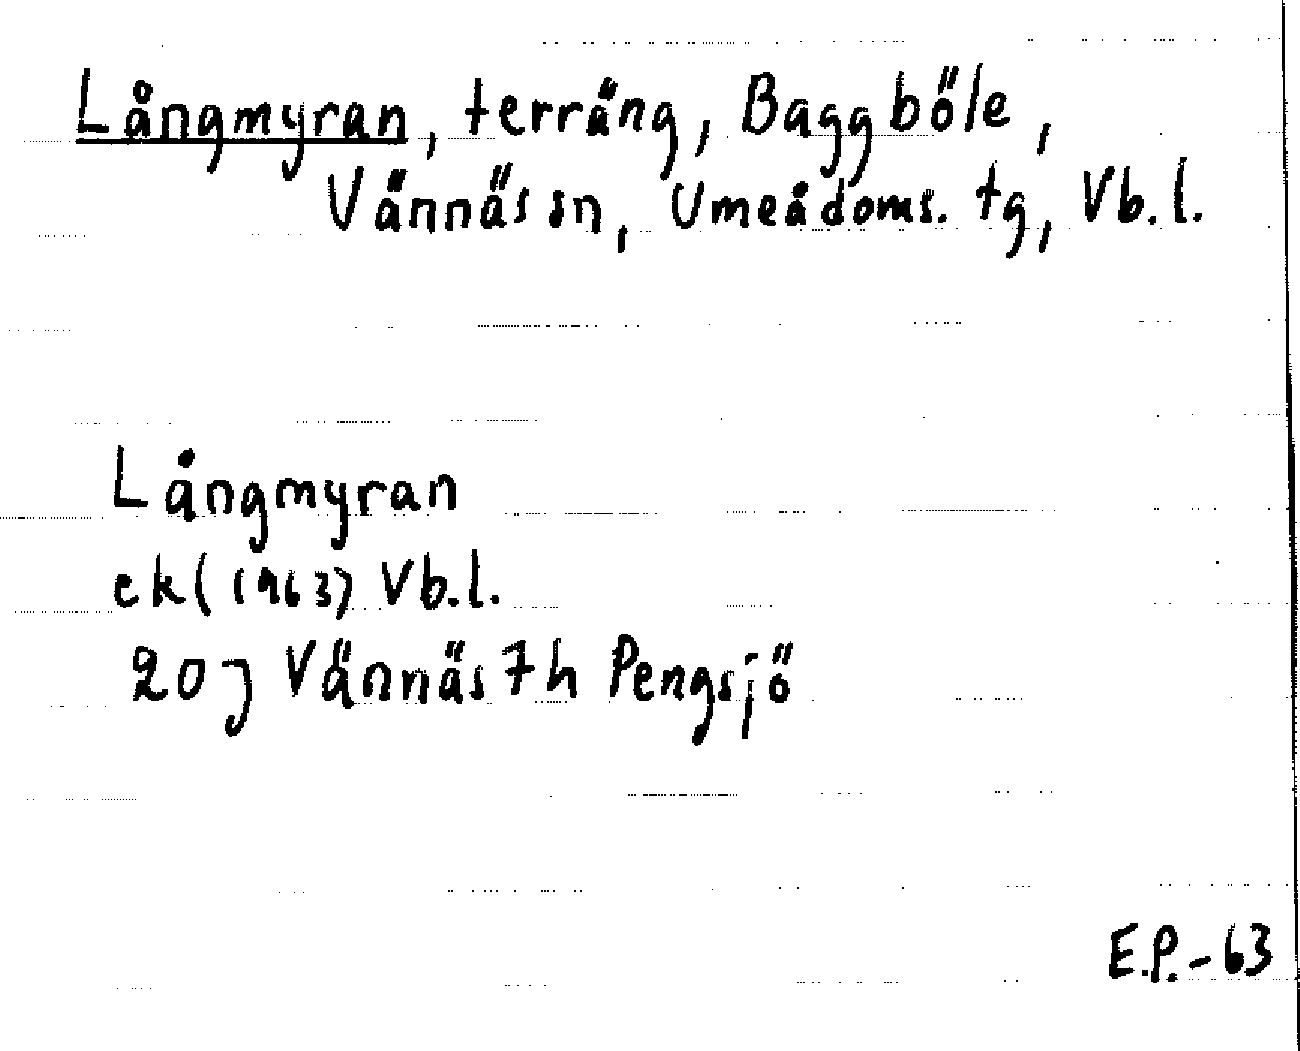 Långmyran, terräng, Baggböle,
Vännäs sn, Umeå doms. tg, Vb. l.
Långmyran
ek (1963) Vb. l.
20 J Vännäs 7 h Pengsjö
E.P. - 63